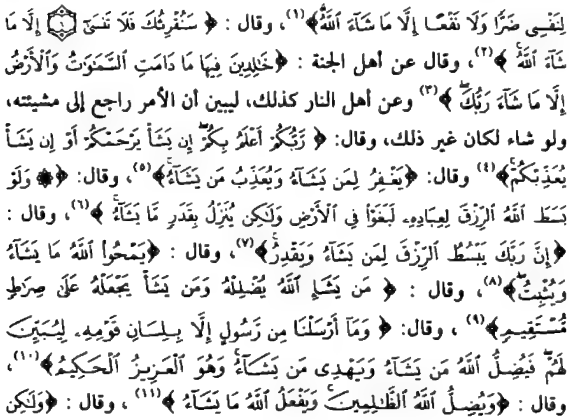 لِنَفْسِى ضَرًّا وَلَا نَفْعًا إِلَّا مَا شَآءَ ٱللَّهُ﴾(١)، وقال : ﴿ سَنُقْرِئُكَ فَلَا تَنسَىٰٓ ۝٦ إِلَّا مَا
شَآءَ ٱللَّهُ ﴾(٢)، وقال عن أهل الجنة : ﴿خَٰلِدِينَ فِيهَا مَا دَامَتِ ٱلسَّمَٰوَٰتُ وَٱلْأَرْضُ
إِلَّا مَا شَآءَ رَبُّكَ ﴾(٣) وعن أهل النار كذلك، ليبين أن الأمر راجع إلى مشيئته،
ولو شاء لكان غير ذلك، وقال: ﴿ رَّبُّكُمْ أَعْلَمُ بِكُمْ ۖ إِن يَشَأْ يَرْحَمْكُمْ أَوْ إِن يَشَأْ
يُعَذِّبْكُمْ ۚ﴾(٤) وقال: ﴿يَغْفِرُ لِمَن يَشَآءُ وَيُعَذِّبُ مَن يَشَآءُ ۚ﴾(٥)، وقال: ﴿۞ وَلَوْ
بَسَطَ ٱللَّهُ ٱلرِّزْقَ لِعِبَادِهِۦ لَبَغَوْا۟ فِى ٱلْأَرْضِ وَلَٰكِن يُنَزِّلُ بِقَدَرٍ مَّا يَشَآءُ ۚ ﴾(٦)، وقال :
﴿إِنَّ رَبَّكَ يَبْسُطُ ٱلرِّزْقَ لِمَن يَشَآءُ وَيَقْدِرُ ۚ﴾(٧)، وقال : ﴿يَمْحُوا۟ ٱللَّهُ مَا يَشَآءُ
وَيُثْبِتُ ۖ﴾(٨)، وقال : ﴿ مَن يَشَإِ ٱللَّهُ يُضْلِلْهُ وَمَن يَشَأْ يَجْعَلْهُ عَلَىٰ صِرَٰطٍ
مُّسْتَقِيمٍ﴾(٩) ، وقال: ﴿ وَمَآ أَرْسَلْنَا مِن رَّسُولٍ إِلَّا بِلِسَانِ قَوْمِهِۦ لِيُبَيِّنَ
لَهُمْ ۖ فَيُضِلُّ ٱللَّهُ مَن يَشَآءُ وَيَهْدِى مَن يَشَآءُ ۚ وَهُوَ ٱلْعَزِيزُ ٱلْحَكِيمُ﴾(١٠)،
وقال : ﴿وَيُضِلُّ ٱللَّهُ ٱلظَّٰلِمِينَ ۚ وَيَفْعَلُ ٱللَّهُ مَا يَشَآءُ ﴾(١١) ، وقال : ﴿وَلَٰكِن